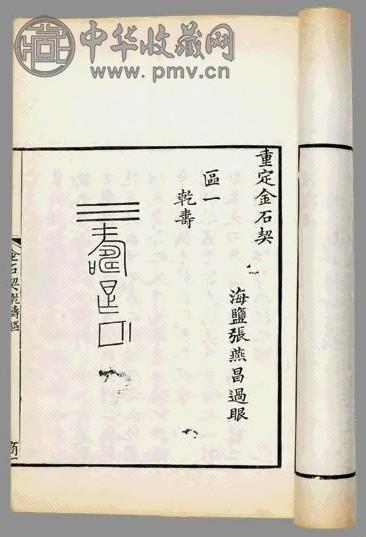 中华收藏网
www.pmv.cn
重定金石契
海鹽張燕昌過眼
區一
乾壽
金石契乾壽區